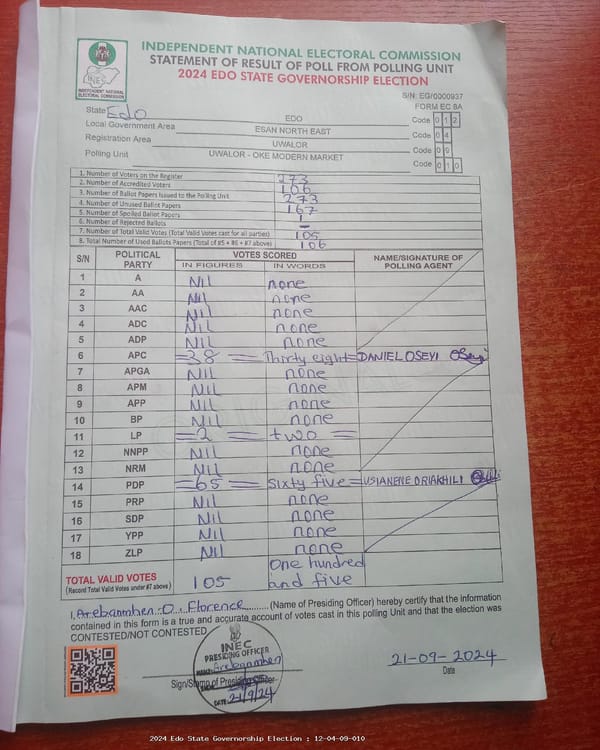 INDEPENDENT NATIONAL ELECTORAL COMMISSION
STATEMENT OF RESULT OF POLL FROM POLLING UNIT
2024 EDO STATE GOVERNORSHIP ELECTION
INEC
INDEPENDENT NATIONAL
ELECTORAL COMMISSION
S/N: EG/0000937
FORM EC 8A
State Edo EDO Code 0 1 2
Local Government Area ESAN NORTH EAST Code 0 4
Registration Area UWALOR Code 0 9
Polling Unit UWALOR - OKE MODERN MARKET Code 0 1 0
1. Number of Voters on the Register 273
2. Number of Accredited Voters 106
3. Number of Ballot Papers Issued to the Polling Unit 273
4. Number of Unused Ballot Papers 167
5. Number of Spoiled Ballot Papers 1
6. Number of Rejected Ballots –
7. Number of Total Valid Votes (Total Valid Votes cast for all parties) 105
8. Total Number of Used Ballots Papers (Total of #5 + #6 + #7 above) 106
S/N POLITICAL PARTY VOTES SCORED NAME/SIGNATURE OF POLLING AGENT
IN FIGURES IN WORDS
1 A Nil none
2 AA Nil none
3 AAC Nil none
4 ADC Nil none
5 ADP Nil none
6 APC =38= Thirty eight= DANIEL OSEYI Oseyi
7 APGA Nil none
8 APM Nil none
9 APP Nil none
10 BP Nil none
11 LP =2= two =
12 NNPP Nil none
13 NRM Nil none
14 PDP =65= Sixty five= USIANENE ORIAKHILI
15 PRP Nil none
16 SDP Nil none
17 YPP Nil none
18 ZLP Nil none
TOTAL VALID VOTES 105 One hundred and five
(Record Total Valid Votes under #7 above)
I, Arebanmhen .O. Florence (Name of Presiding Officer) hereby certify that the information
contained in this form is a true and accurate account of votes cast in this polling Unit and that the election was
CONTESTED/NOT CONTESTED
INEC
PRESIDING OFFICER
NAME: Arebanmhen
SIGN:
DATE: 21/9/24
Sign/Stamp of Presiding Officer
21-09-2024
Date
2024 Edo State Governorship Election : 12-04-09-010